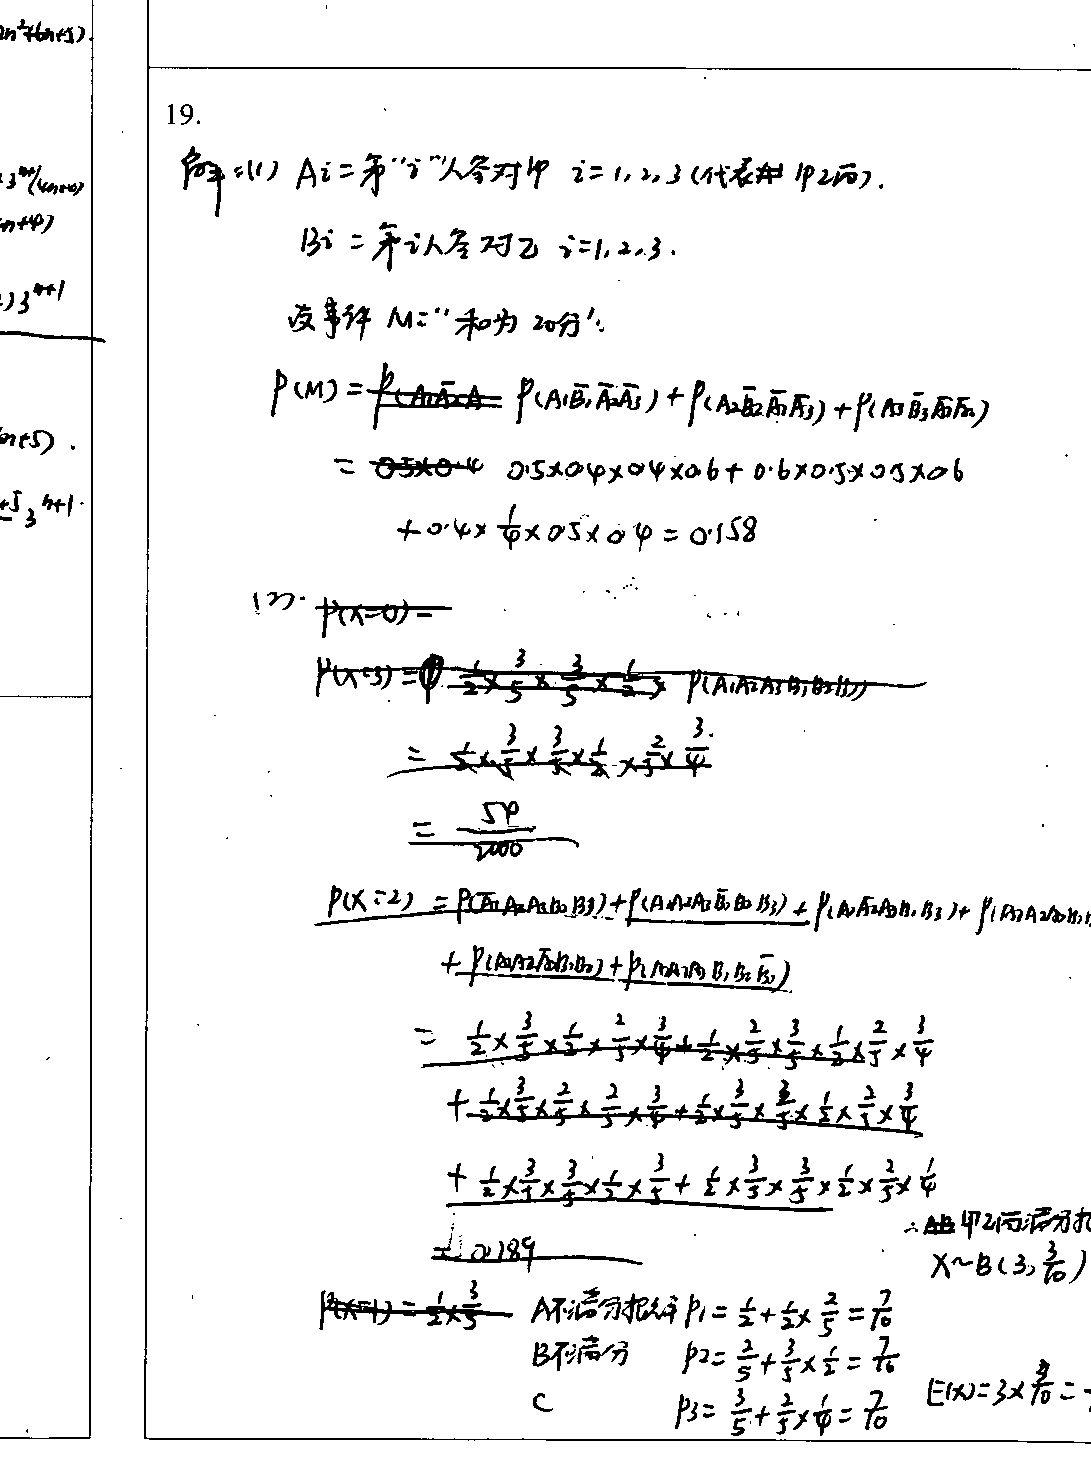 2n²+6n+5).
19.
解:(1) Ai=第"i"人答对甲 i=1,2,3(代表 甲乙丙).
Bi=第i人答对乙 i=1,2,3.
设事件 M="和为20分".
P(M)=P(A₁Ā₂A P(A₁B̄₁Ā₂Ā₃)+P(A₂B̄₂Ā₁Ā₃)+P(A₃B̄₃Ā₁Ā₂)
3ⁿ⁺¹
= 0.5×0.4 0.5×0.4×0.4×0.6+0.6×0.5×0.5×0.6
n+5).
+5 3ⁿ⁺¹
+0.4×1/4×0.5×0.4=0.158
(2). P(X=0)=
P(X=3)= 1/2×3/5×3/5×1/2× P(A₁A₂A₃B₁B₂B₃)
= 1/2×3/5×3/5×1/2×2/5×3/4
= 54/2000
P(X=2) =P(Ā₁A₂A₃B₂B₃)+P(A₁A₂A₃B̄₁B₂B₃)+P(A₁Ā₂A₃B₁B₃)+P(A₁A₂A₃B₁
+P(A₁A₂Ā₃B₁B₂)+P(A₁A₂A₃B₁B₂B̄₃)
= 1/2×3/5×1/2×2/5×3/4+1/2×2/5×3/5×1/2×2/5×3/4
+1/2×3/5×2/5×2/5×3/4+1/2×3/5×3/5×1/2×2/5×3/4
+1/2×3/5×3/5×1/2×3/5+1/2×3/5×3/5×1/2×2/5×1/4
=0.189
∴AB 甲乙丙满分
X~B(3,3/10)
P(X=1)=1/2×3/5 A不满分概率P₁=1/2+1/2×2/5=7/10
B不满分 P2=2/5+3/5×1/2=7/10
C P3=3/5+2/5×1/4=7/10
E(X)=3×3/10=